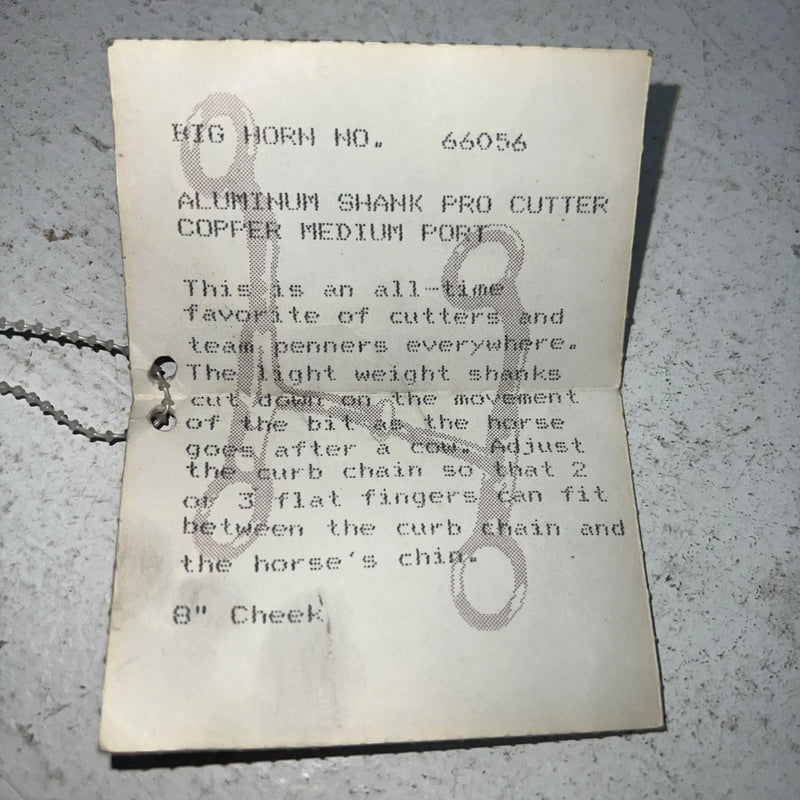 BIG HORN NO. 66056
ALUMINUM SHANK PRO CUTTER
COPPER MEDIUM PORT
This is an all-time
favorite of cutters and
team penners everywhere.
The light weight shanks
cut down on the movement
of the bit as the horse
goes after a cow. Adjust
the curb chain so that 2
or 3 flat fingers can fit
between the curb chain and
the horse's chin.
8" Cheek